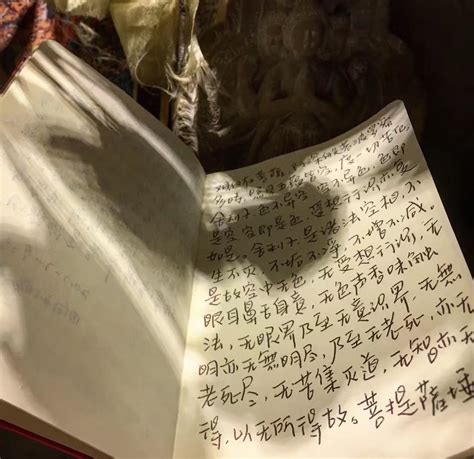 观自在菩萨,行深般若波罗蜜
多时,照见五蕴皆空,度一切苦厄。
舍利子,色不异空,空不异色,色即
是空,空即是色,受想行识亦复
如是。舍利子,是诸法空相,不
生不灭,不垢不净,不增不减。
是故空中无色,无受想行识,无
眼耳鼻舌身意,无色声香味触
法,无眼界乃至无意识界,无無
明亦无無明尽,乃至无老死,亦无
老死尽,无苦集灭道,无智亦无
得,以无所得故。菩提萨埵